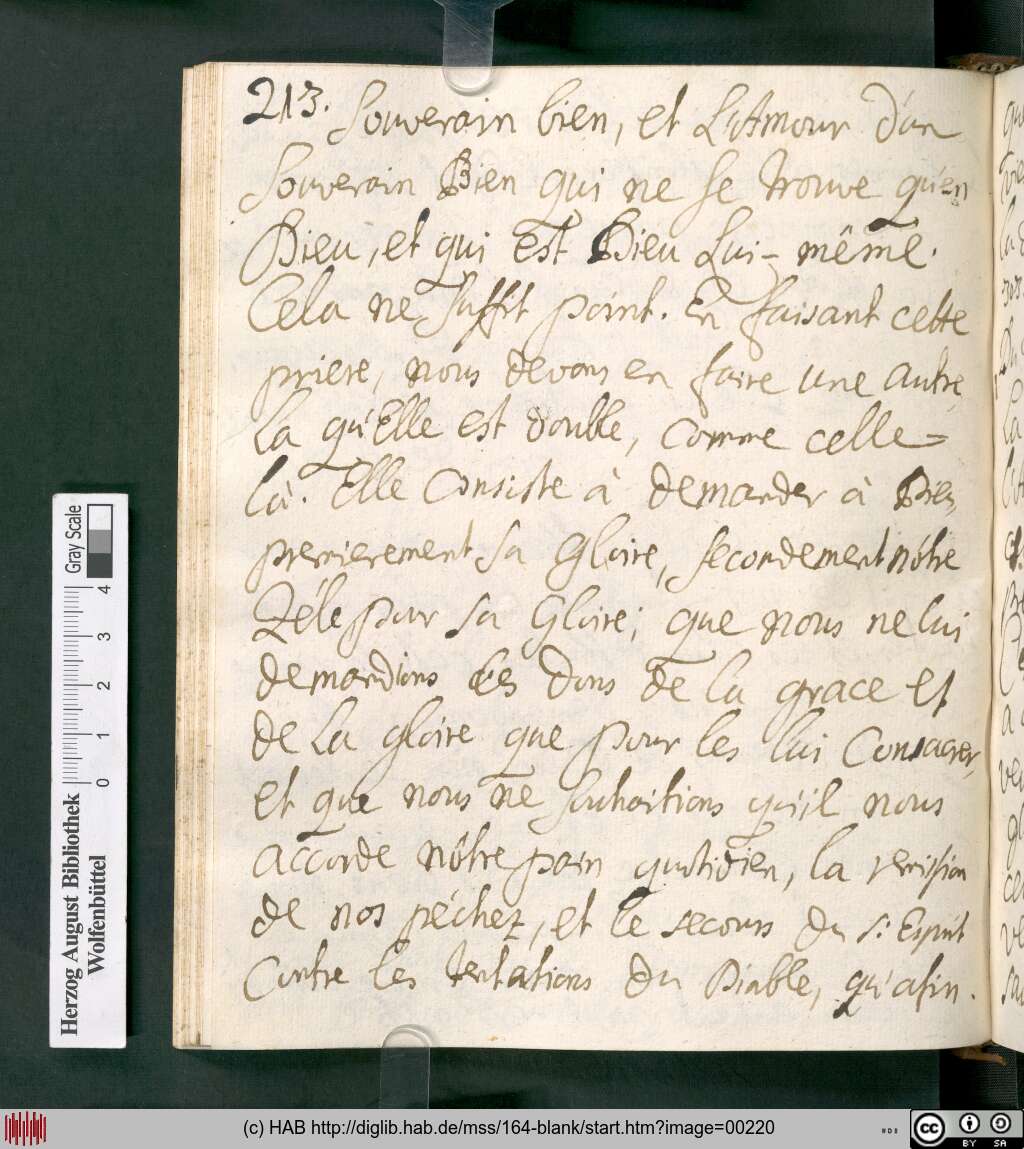 213. Souverain bien, et L'Amour d'un
Souverain Bien qui ne se trouve qu'en
Dieu, et qui est Dieu Lui-même.
Cela ne suffit point. En faisant cette
priere, nous devons en faire une autre
La qu'Elle est double, comme celle=
là. Elle Consiste à demander à Dieu,
premierement sa Gloire, secondement nôtre
Zéle pour sa Gloire; que nous ne lui
demandions les Dons de la grace et
de La gloire que pour les lui Consacrer,
et que nous ne souhaitions qu'il nous
accorde nôtre pain quotidien, la remission
de nos péchez, et le secours du S: Esprit
Contre les tentations du Diable, qu'afin.
Gray Scale
4
3
2
1
0
Herzog August Bibliothek
Wolfenbüttel
(c) HAB http://diglib.hab.de/mss/164-blank/start.htm?image=00220
cc BY SA